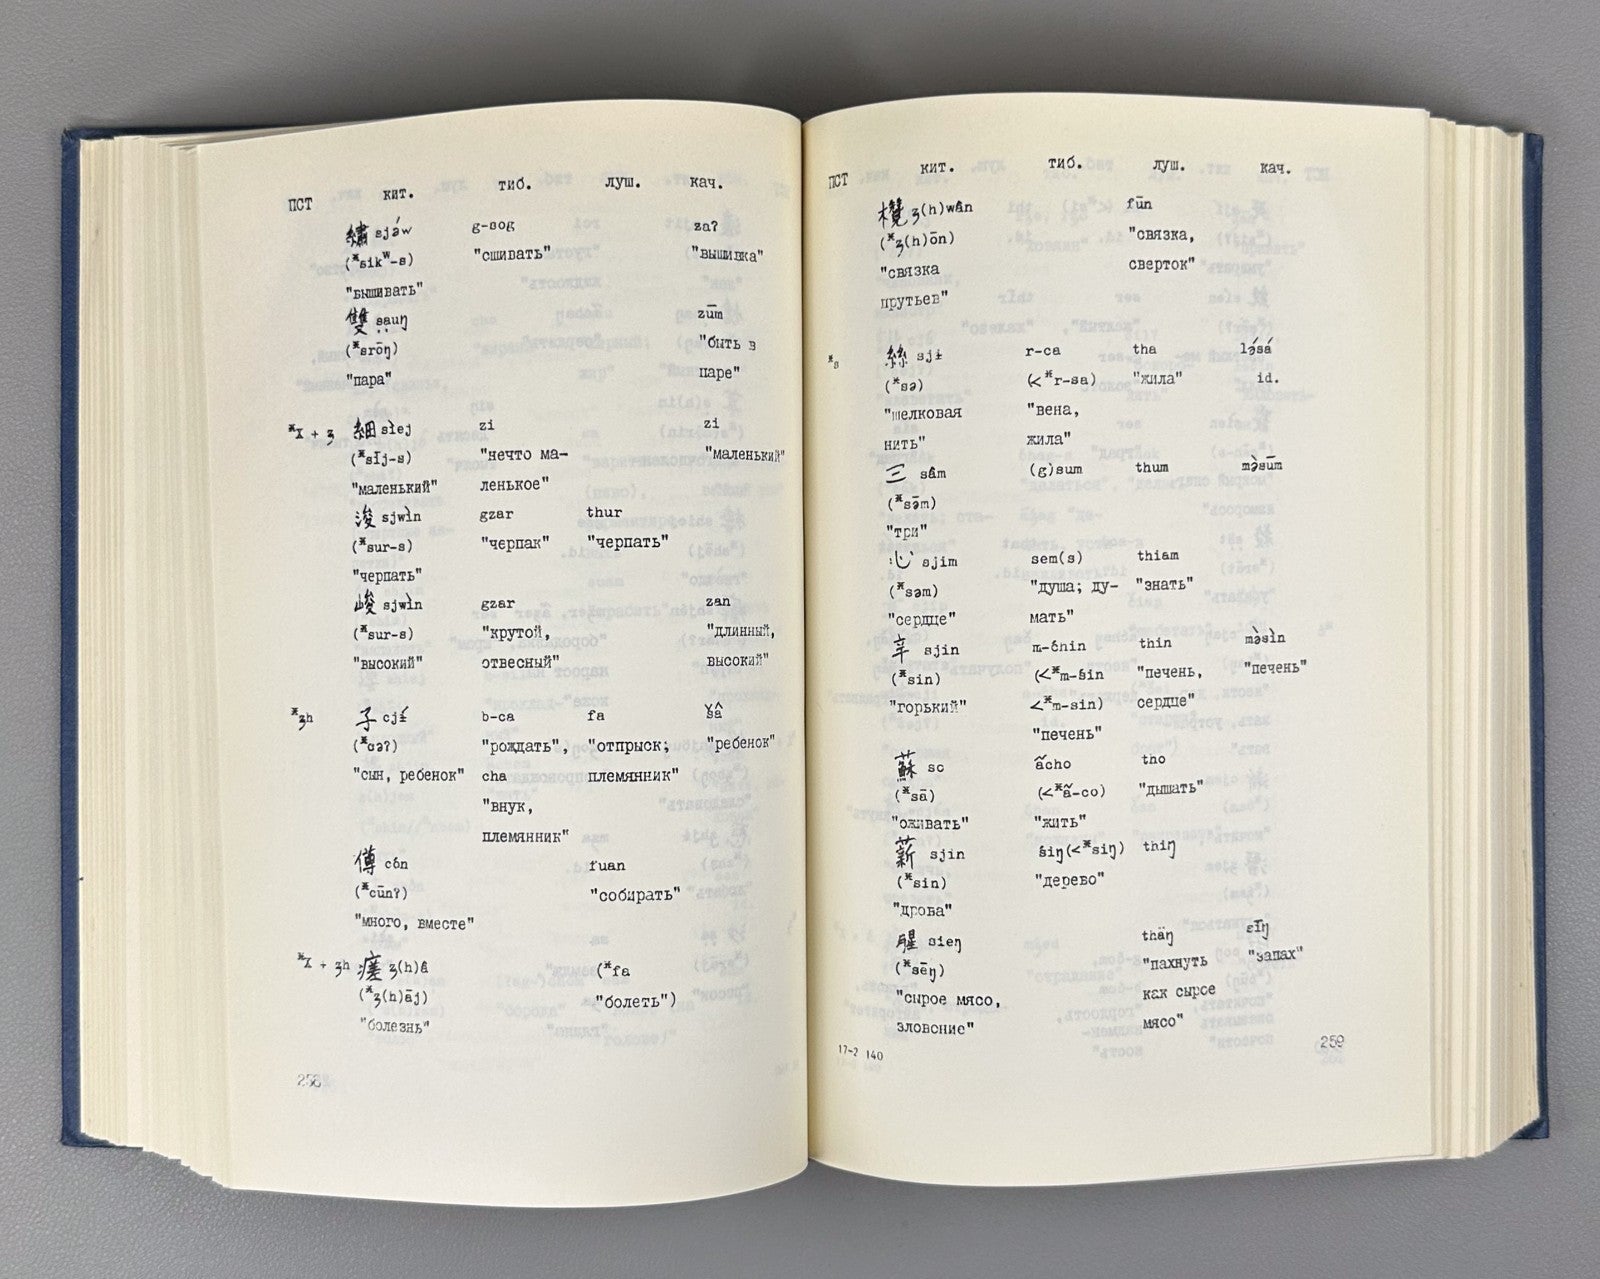 ПСТ кит. тиб. луш. кач.
繡 sjáw g-sog zaʔ
(*sikʷ-s) "сшивать" "вышивка"
"вышивать"
雙 ṣạuŋ zūm
(*srōŋ) "быть в
"пара" паре"
*X + ʒ 細 sìej zi zi
(*sīj-s) "нечто ма- "маленький"
"маленький" ленькое"
浚 sjwìn gzar thur
(*sur-s) "черпак" "черпать"
"черпать"
峻 sjwìn gzar zan
(*sur-s) "крутой, "длинный,
"высокий" отвесный" высокий"
*ʒh 子 cjɨ́ b-ca fa šâ
(*cəʔ) "рождать", "отпрыск; "ребенок"
"сын, ребенок" cha племянник"
"внук,
племянник"
僔 cón fuan
(*cūnʔ) "собирать"
"много, вместе"
*X + ʒh 瘥 ʒ(h)â (*fa
(*ʒ(h)āj) "болеть")
"болезнь"
258
ПСТ кит. тиб. луш. кач.
欑 ʒ(h)wân fūn
(*ʒ(h)ōn) "связка,
"связка сверток"
прутьев"
*s 絲 sjɨ r-ca tha ləsá
(*sə) (<*r-sa) "жила" id.
"шелковая "вена,
нить" жила"
三 sâm (g)sum thum mə̀sūm
(*sə̄m)
"три"
心 sjim sem(s) thiam
(*səm) "душа; ду- "знать"
"сердце" мать"
辛 sjin m-ćhin thin mə̀sìn
(*sin) (<*m-śin "печень, "печень"
"горький" <*m-sin) сердце"
"печень"
蘇 so ãcho tho
(*sā) (<*ã-co) "дышать"
"оживать" "жить"
薪 sjin śiŋ(<*siŋ) thiŋ
(*sin) "дерево"
"дрова"
腥 sieŋ thäŋ sīŋ
(*sēŋ) "пахнуть "запах"
"сырое мясо, как сырое
зловоние" мясо"
17-2 140 259